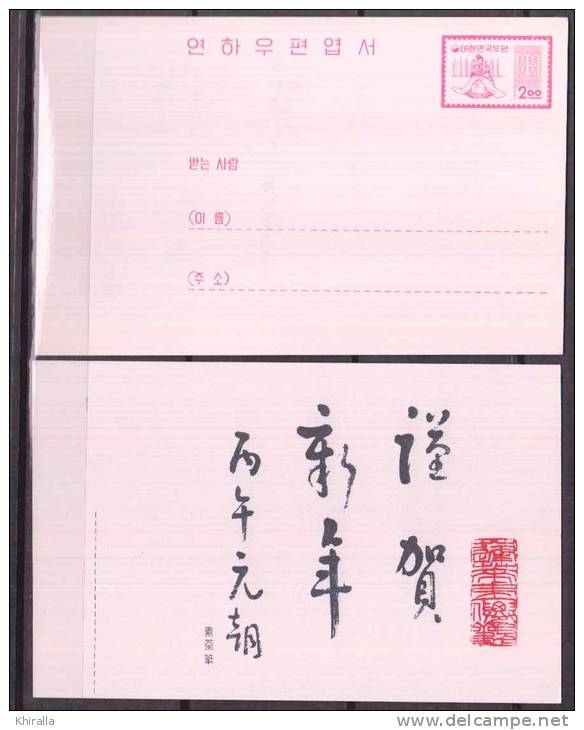 연하우편엽서
대한민국우편
2.00
받는 사람
(이 름)
(주 소)
謹賀
新年
丙午元朝
素荃筆
Khiralla
www.delcampe.net